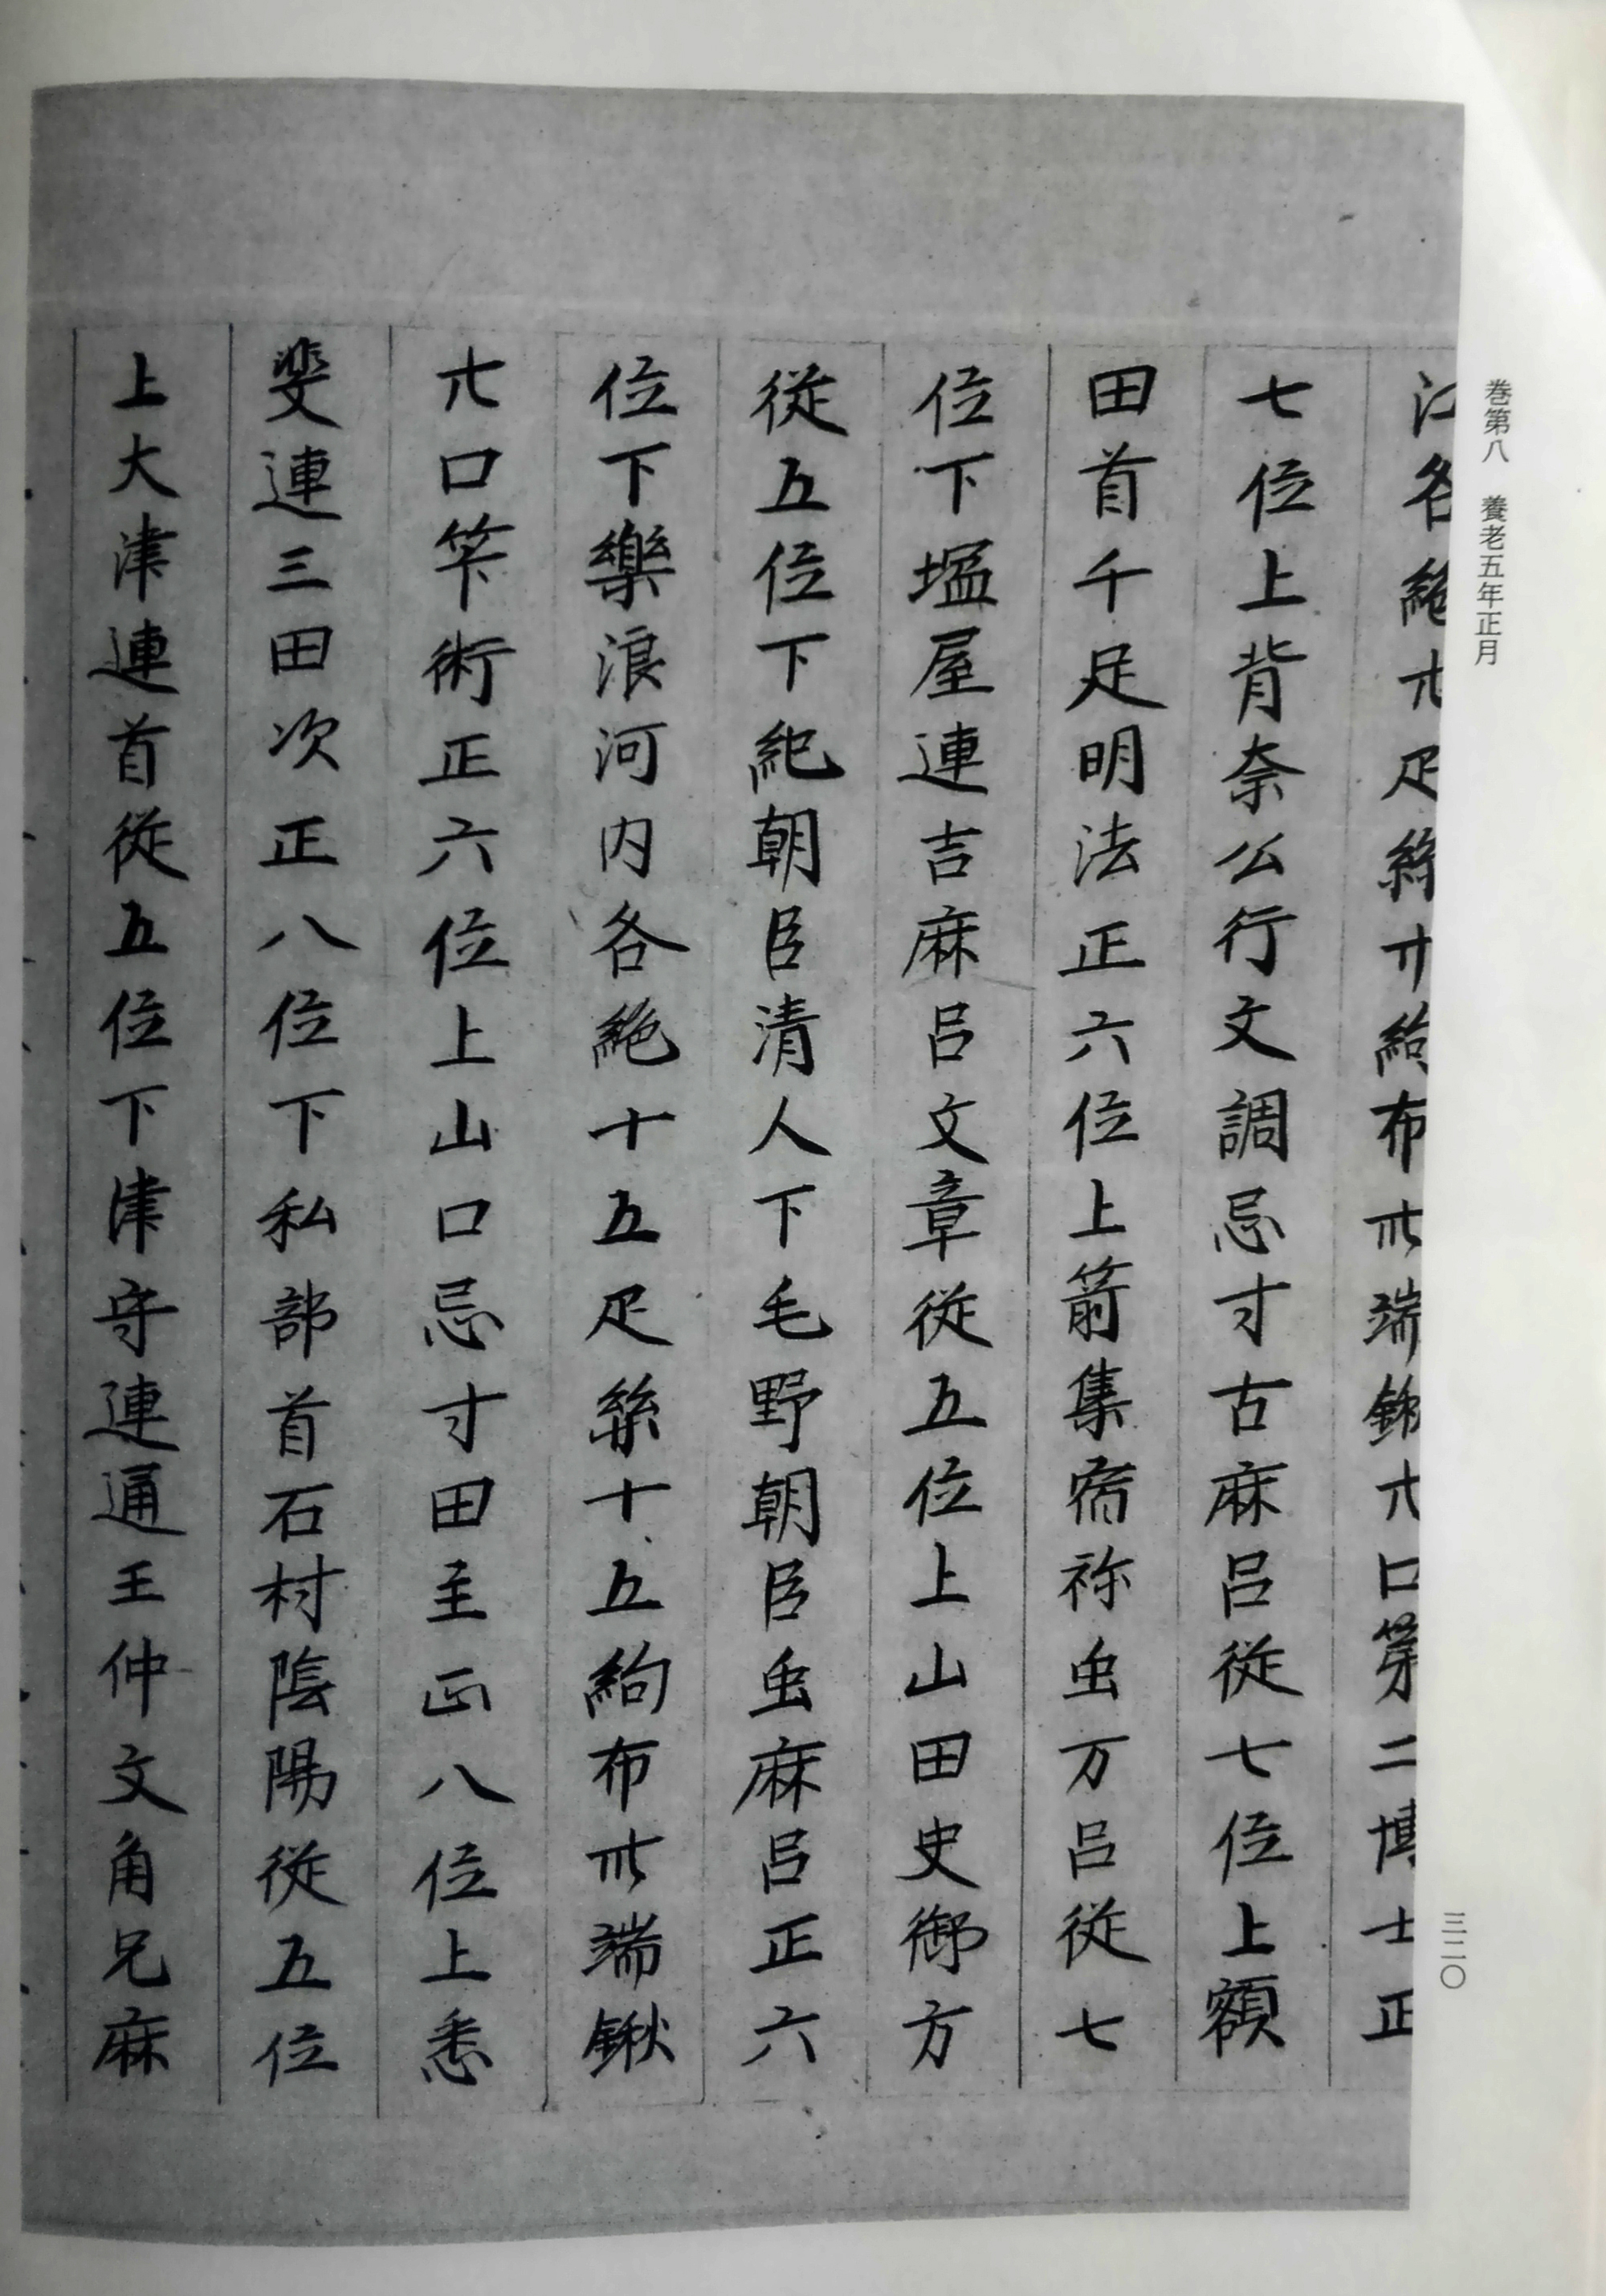 巻第八　養老五年正月
江各絁廿疋絲廾絇布卅端鍬廿口第二博士正
七位上背奈公行文調忌寸古麻呂従七位上額
田首千足明法正六位上箭集宿祢虫万呂従七
位下塩屋連吉麻呂文章従五位上山田史御方
従五位下紀朝臣清人下毛野朝臣虫麻呂正六
位下樂浪河内各絁十五疋絲十五絇布卅端鍬
廿口笇術正六位上山口忌寸田主正八位上悉
斐連三田次正八位下私部首石村陰陽従五位
上大津連首従五位下津守連通王仲文角兄麻
三二〇